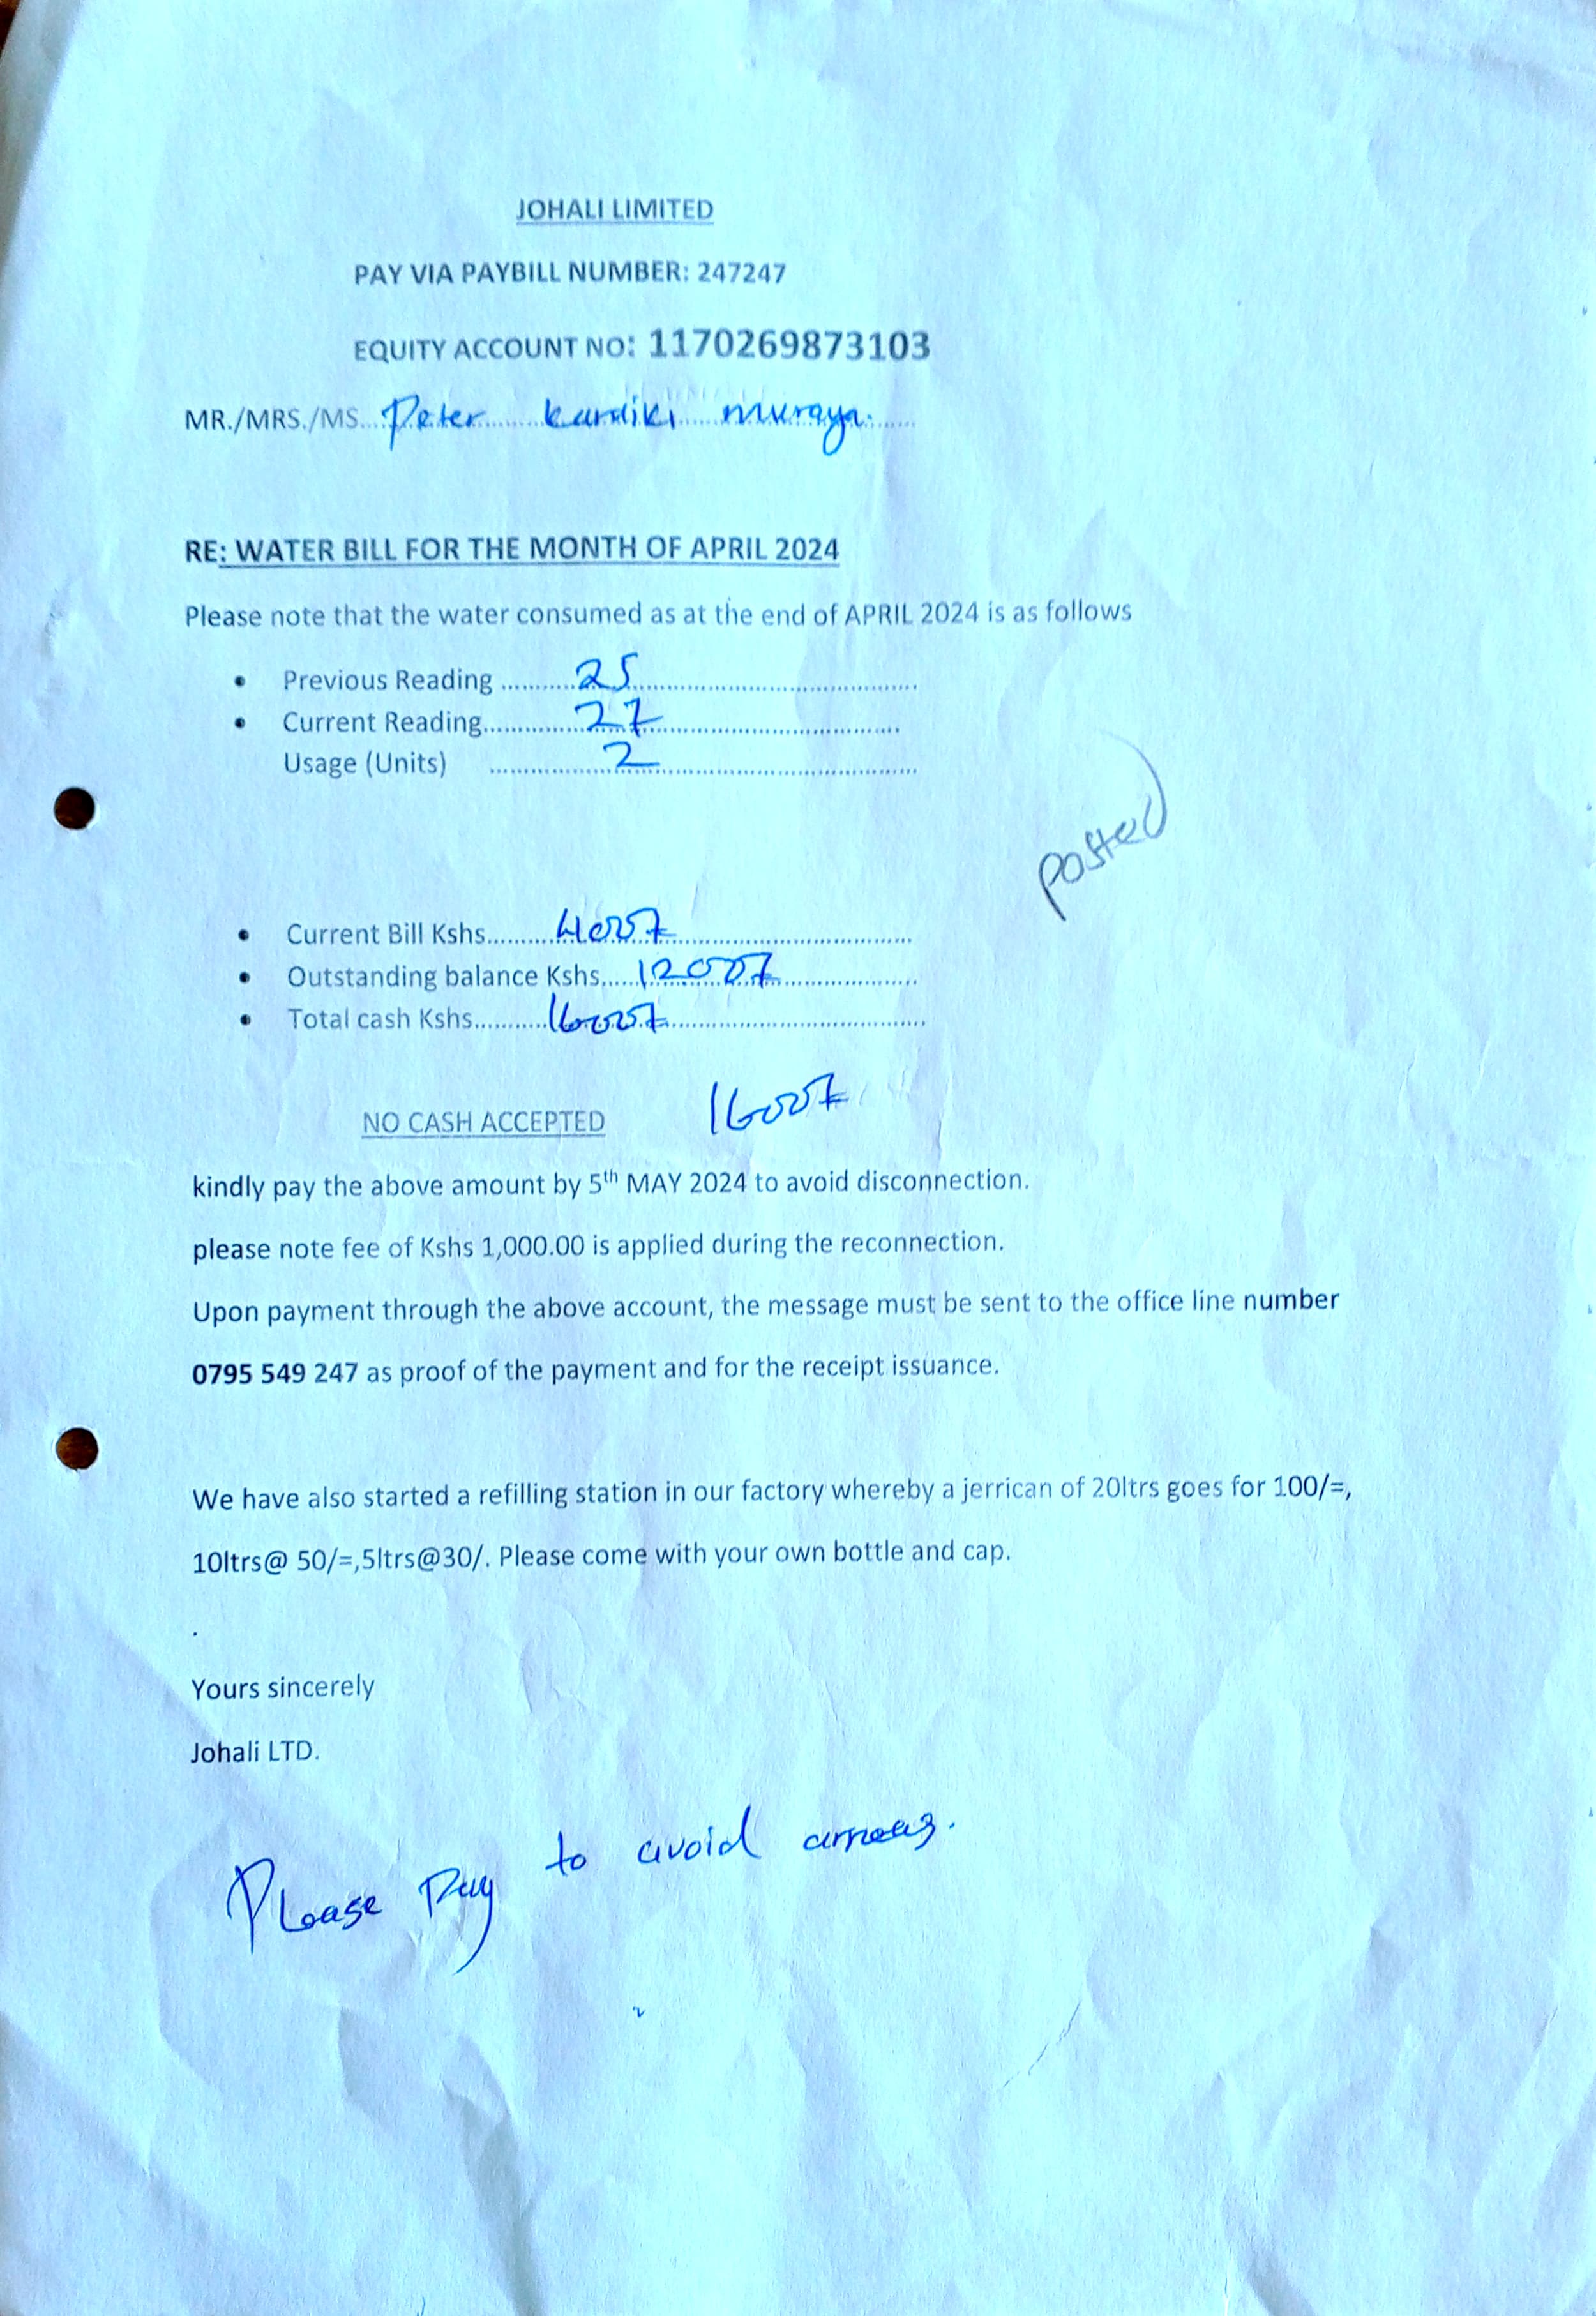 JOHALI LIMITED
PAY VIA PAYBILL NUMBER: 247247
EQUITY ACCOUNT NO: 1170269873103
MR./MRS./MS....Peter kariuki muraya.......
RE: WATER BILL FOR THE MONTH OF APRIL 2024
Please note that the water consumed as at the end of APRIL 2024 is as follows
• Previous Reading ...........25...........................................
• Current Reading..............27...........................................
Usage (Units) ..................2...........................................
posted
• Current Bill Kshs..........400/=...................................
• Outstanding balance Kshs.....1200/=.....................
• Total cash Kshs...........1600/=...................................
NO CASH ACCEPTED 1600/=
kindly pay the above amount by 5th MAY 2024 to avoid disconnection.
please note fee of Kshs 1,000.00 is applied during the reconnection.
Upon payment through the above account, the message must be sent to the office line number
0795 549 247 as proof of the payment and for the receipt issuance.
We have also started a refilling station in our factory whereby a jerrican of 20ltrs goes for 100/=,
10ltrs@ 50/=,5ltrs@30/. Please come with your own bottle and cap.
.
Yours sincerely
Johali LTD.
Please Pay to avoid arrears.